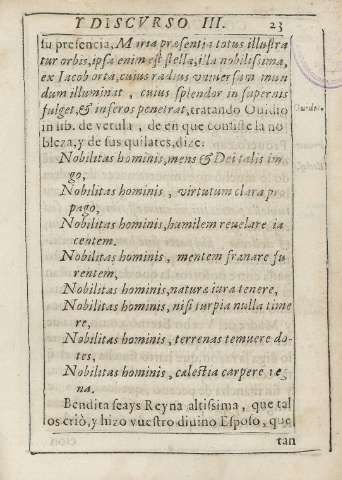 Y DISCVRSO III. 23
su presencia, Maria præsentia totus illustra
tur orbis, ipsa enim est stella, illa nobilissima,
ex Iacob orta, cuius radius vniuersam mun
dum illuminat, cuius splendor in supernis
fulget, & inferos penetrat, tratando Ouidio
in lib. de vetula, de en que consiste la no
bleza, y de sus quilates, dize:
Nobilitas hominis, mens & Dei talis im
go,
Nobilitas hominis, virtutum clara pr
pago,
Nobilitas hominis, humilem reuelare ia
centem.
Nobilitas hominis, mentem franare fu
rentem,
Nobilitas hominis, naturæ iura tenere,
Nobilitas hominis, nisi turpia nulla time
re,
Nobilitas hominis, terrenas temuere do-
tes,
Nobilitas hominis, calestia carpere reg
na.
Bendita seays Reyna altissima, que tal
os criò, y hizo vuestro diuino Esposo, que
tan